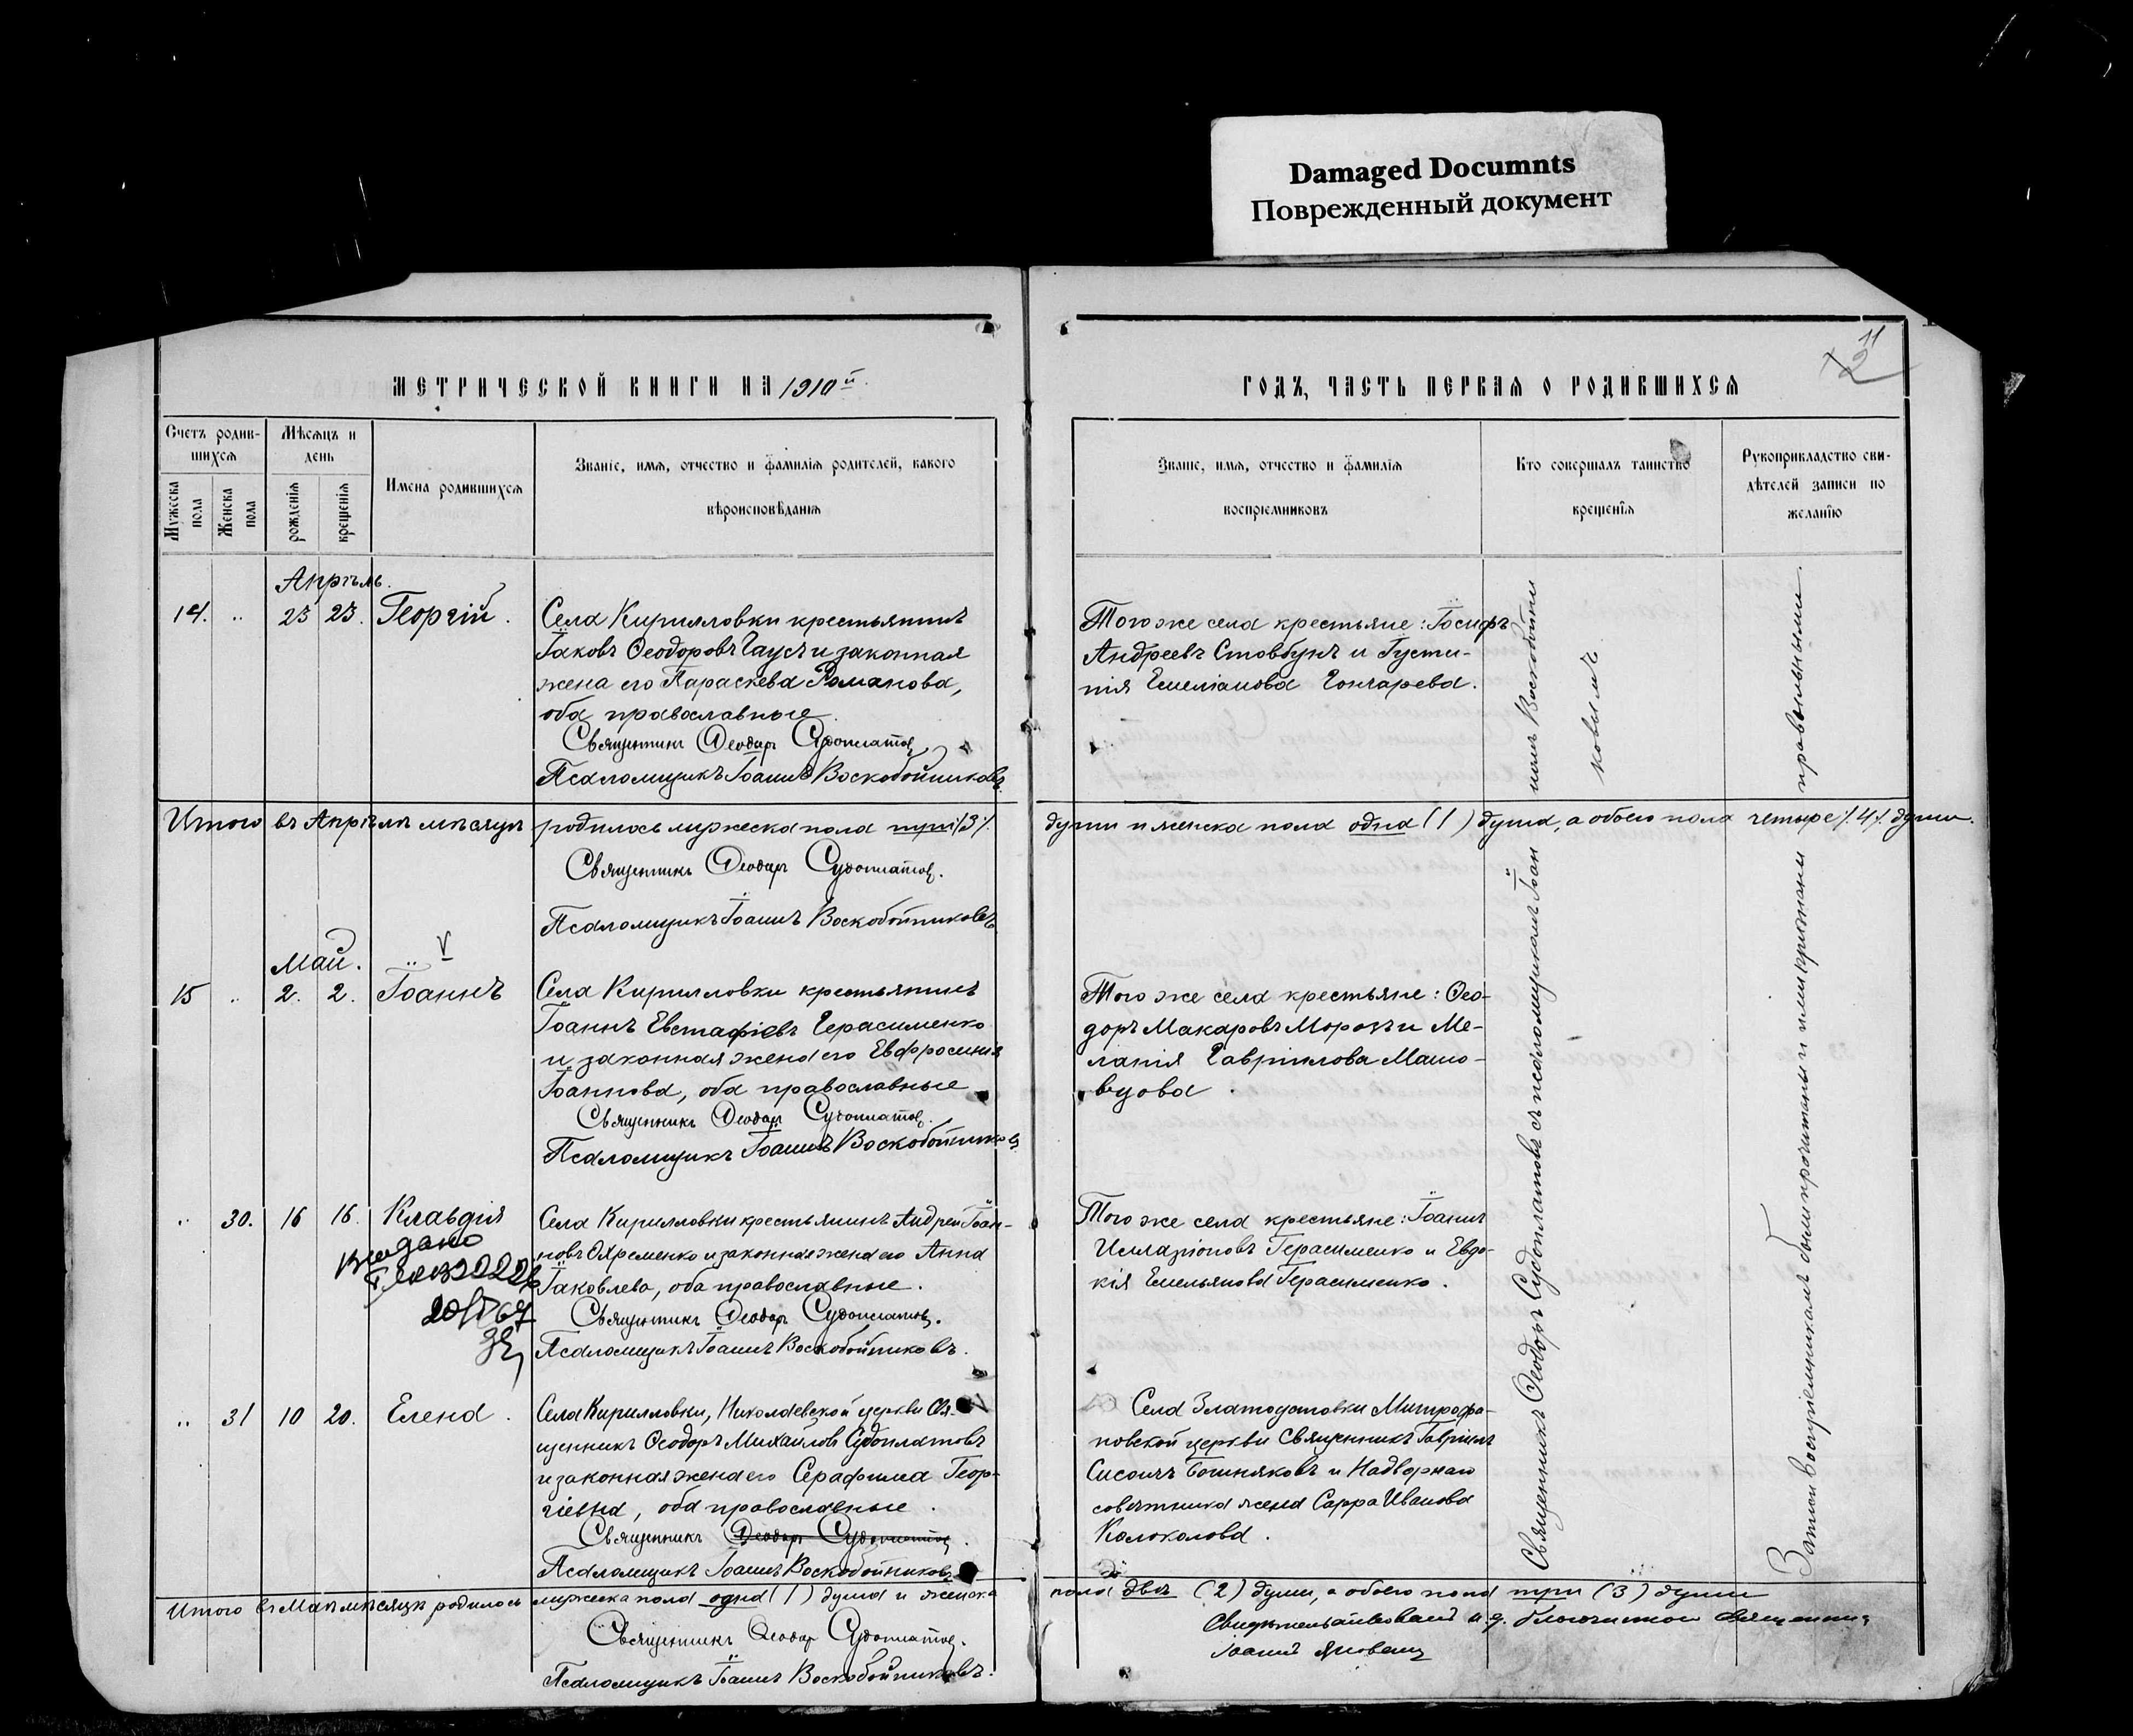 Damaged Documnts
Поврежденный документ
11
2
МЕТРИЧЕСКОЙ КНИГИ НА 1910й
ГОДЪ, ЧАСТЬ ПЕРВАЯ О РОДИВШИХСЯ
Счетъ родив-
шихся
Мужеска пола
Женска пола
Мѣсяцъ и
день
рожденія
крещенія
Имена родившихся
Званіе, имя, отчество и фамилія родителей, какого
вѣроисповѣданія
Званіе, имя, отчество и фамилія
воспріемниковъ
Кто совершалъ таинство
крещенія
Рукоприкладство сви-
дѣтелей записи по
желанію
Апрѣль.
14. .. 23 23. Георгій.
Села Кирилловки крестьянинъ
Іаковъ Ѳеодоровъ Гаусъ и законная
жена его Параскева Романова,
оба православные.
Священникъ Ѳеодоръ Судоплатов
Псаломщикъ Іоаннъ Воскобойниковъ.
Того же села крестьяне: Іосифъ
Андреевъ Стовбунъ и Густи-
нія Емеліанова Гончарева.
Итого въ Апрѣлѣ мѣсяцѣ родилось мужеска пола три /3/.
души и женска пола одна (1) душа, а обоего пола четыре /4/. души.
Священникъ Ѳеодоръ Судоплатов.
Псаломщикъ Іоаннъ Воскобойниковъ
Май.
15 .. 2. 2. Іоаннъ
Села Кирилловки крестьянинъ
Іоаннъ Евстафіевъ Герасименко
и законная жена его Евфросинія
Іоаннова, оба православные
Священникъ Ѳеодоръ Судоплатов.
Псаломщикъ Іоаннъ Воскобойниковъ
Того же села крестьяне: Ѳео-
доръ Макаровъ Морозъ и Ме-
ланія Гавріилова Машо-
вцова.
.. 30. 16 16. Клавдия
Выдано
20/V 67
Села Кирилловки крестьянинъ Андрей Іоан-
новъ Охременко и законная жена его Анна
Іаковлева, оба православные.
Священникъ Ѳеодоръ Судоплатов.
Псаломщикъ Іоаннъ Воскобойниковъ.
Того же села крестьяне: Іоаннъ
Илларіоновъ Герасименко и Евдо-
кія Емельянова Герасименко.
.. 31 10 20. Елена.
Села Кирилловки, Николаевской церкви Свя-
щенникъ Ѳеодоръ Михайловъ Судоплатовъ
и законная жена его Серафима Геор-
гіевна, оба православные.
Священникъ Ѳеодоръ Судоплатов.
Псаломщикъ Іоаннъ Воскобойниковъ
Села Златоустовки Митрофа-
новской церкви Священникъ Гавріилъ
Сисоичъ и Надворнаго
совѣтника жена Сарра Иванова
Колоколова.
Священникъ Ѳеодоръ Судоплатовъ съ псаломщикомъ Іоан
номъ Воскобойни
ковымъ
Записи воспріемникамъ были прочитаны и ими признаны правильными.
Итого въ Маѣ мѣсяцѣ родилось мужеска пола одна (1) душа и женска
пола двѣ (2) души, а обоего пола три (3) души
Священникъ Ѳеодоръ Судоплатов.
Псаломщикъ Іоаннъ Воскобойниковъ.
Свидѣтельствовалъ и.д. благочиннаго Священникъ
Іоаннъ Яновецъ